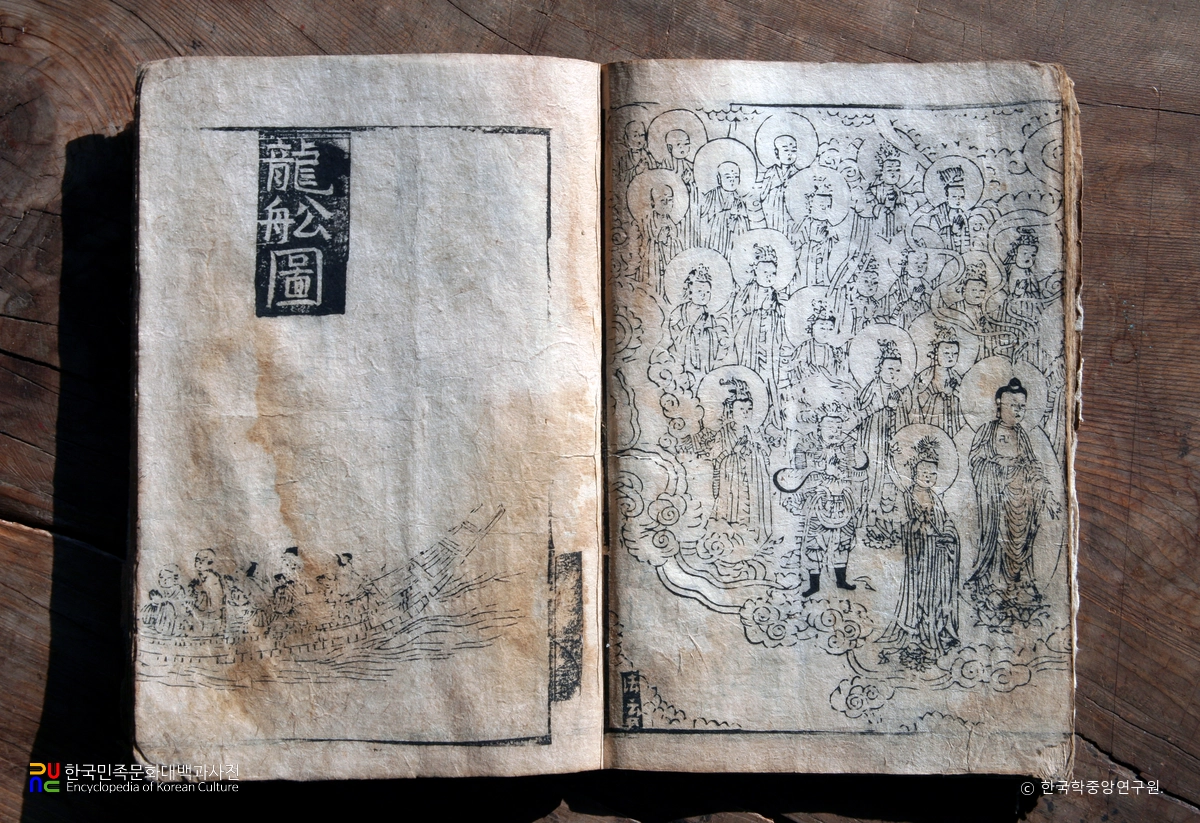 龍
舩
圖
한국민족문화대백과사전
Encyclopedia of Korean Culture
ⓒ 한국학중앙연구원.